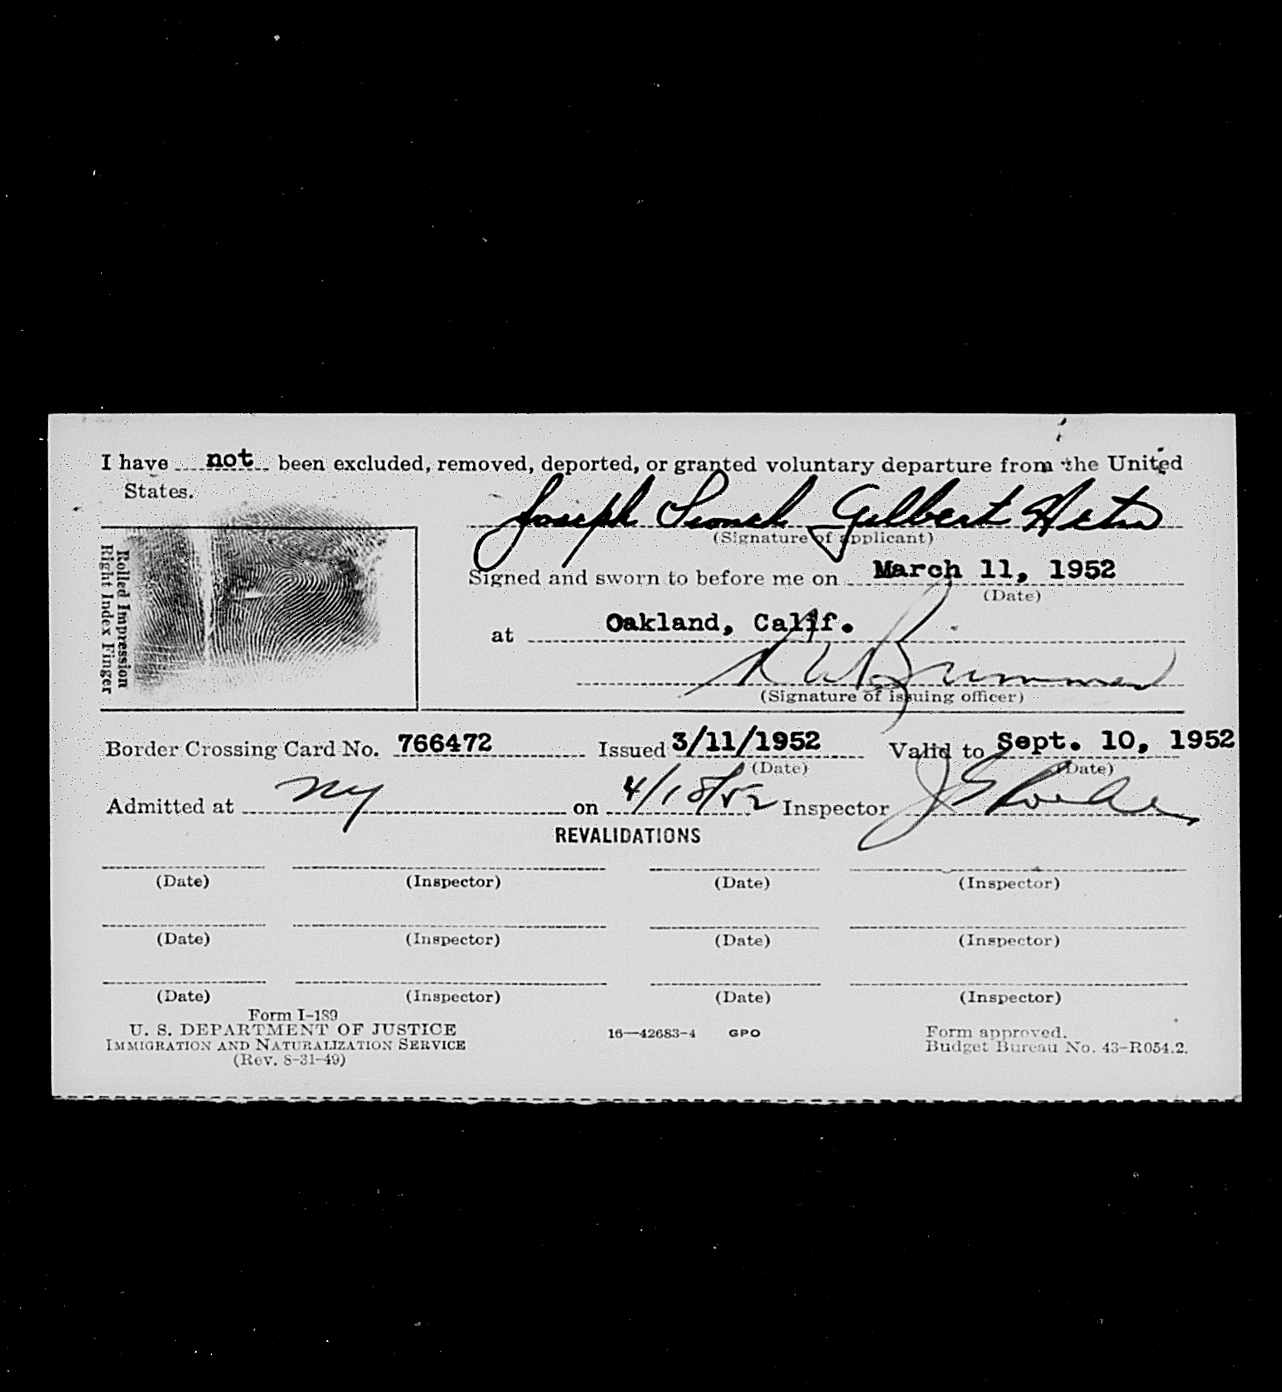 I have not been excluded, removed, deported, or granted voluntary departure from the United
States.
Joseph Gilbert
(Signature of applicant)
Rolled Impression
Right Index Finger
Signed and sworn to before me on March 11, 1952
(Date)
at Oakland, Calif.
(Signature of issuing officer)
Border Crossing Card No. 766472 Issued 3/11/1952 Valid to Sept. 10, 1952
(Date) (Date)
Admitted at NY on 4/18/52 Inspector
REVALIDATIONS
(Date) (Inspector) (Date) (Inspector)
(Date) (Inspector) (Date) (Inspector)
(Date) (Inspector) (Date) (Inspector)
Form I-189
U. S. DEPARTMENT OF JUSTICE
IMMIGRATION AND NATURALIZATION SERVICE
(Rev. 8-31-49)
16—42683-4 GPO
Form approved.
Budget Bureau No. 43-R054.2.